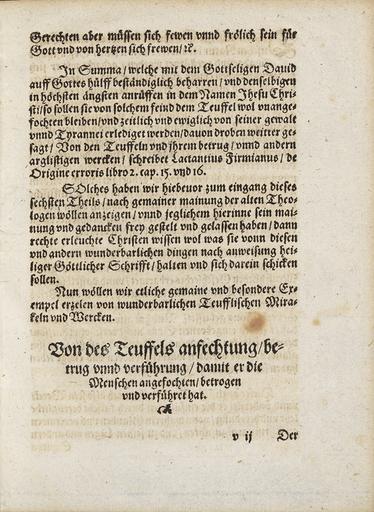 Gerechten aber müssen sich fewen vnnd frölich sein für
Gott vnd von hertzen sich frewen/ꝛc.
In Summa/welche mit dem Gottseligen Dauid
auff Gottes hülff bestäñdiglich beharren/vnd denselbigen
in höchsten ängsten anrüffen in dem Namen Jhesu Chri-
sti/so sollen sie von solchem feind dem Teuffel wol vnange-
fochten bleiben/vnd zeitlich vnd ewiglich von seiner gewalt
vnnd Tyrannei erlediget werden/dauon droben weitter ge-
sagt/Von den Teuffeln vnd jhrem betrug/vnnd andern
arglistigen wercken/schreibet Lactantius Firmianus/de
Origine erroris libro 2. cap. 15. vnd 16.
SOlches haben wir hiebeuor zum eingang dieses
sechsten Theils/nach gemainer mainung der alten Theo-
logen wöllen anzeigen/vnnd jeglichem hierinne sein mai-
nung vnd gedancken frey gestelt vnd gelassen haben/dann
rechte erleuchte Christen wissen wol was sie vonn diesen
vnd andern wunderbarlichen dingen nach anweisung hei-
liger Göttlicher Schrifft/halten vnd sich darein schicken
sollen.
Nun wöllen wir etliche gemaine vnd besondere Ex-
empel erzelen von wunderbarlichen Teufflischen Mira-
keln vnd Wercken.
Von des Teuffels anfechtung/be-
trug vnnd verführung/damit er die
Menschen angefochten/betrogen
vnd verführet hat.
v ij Der